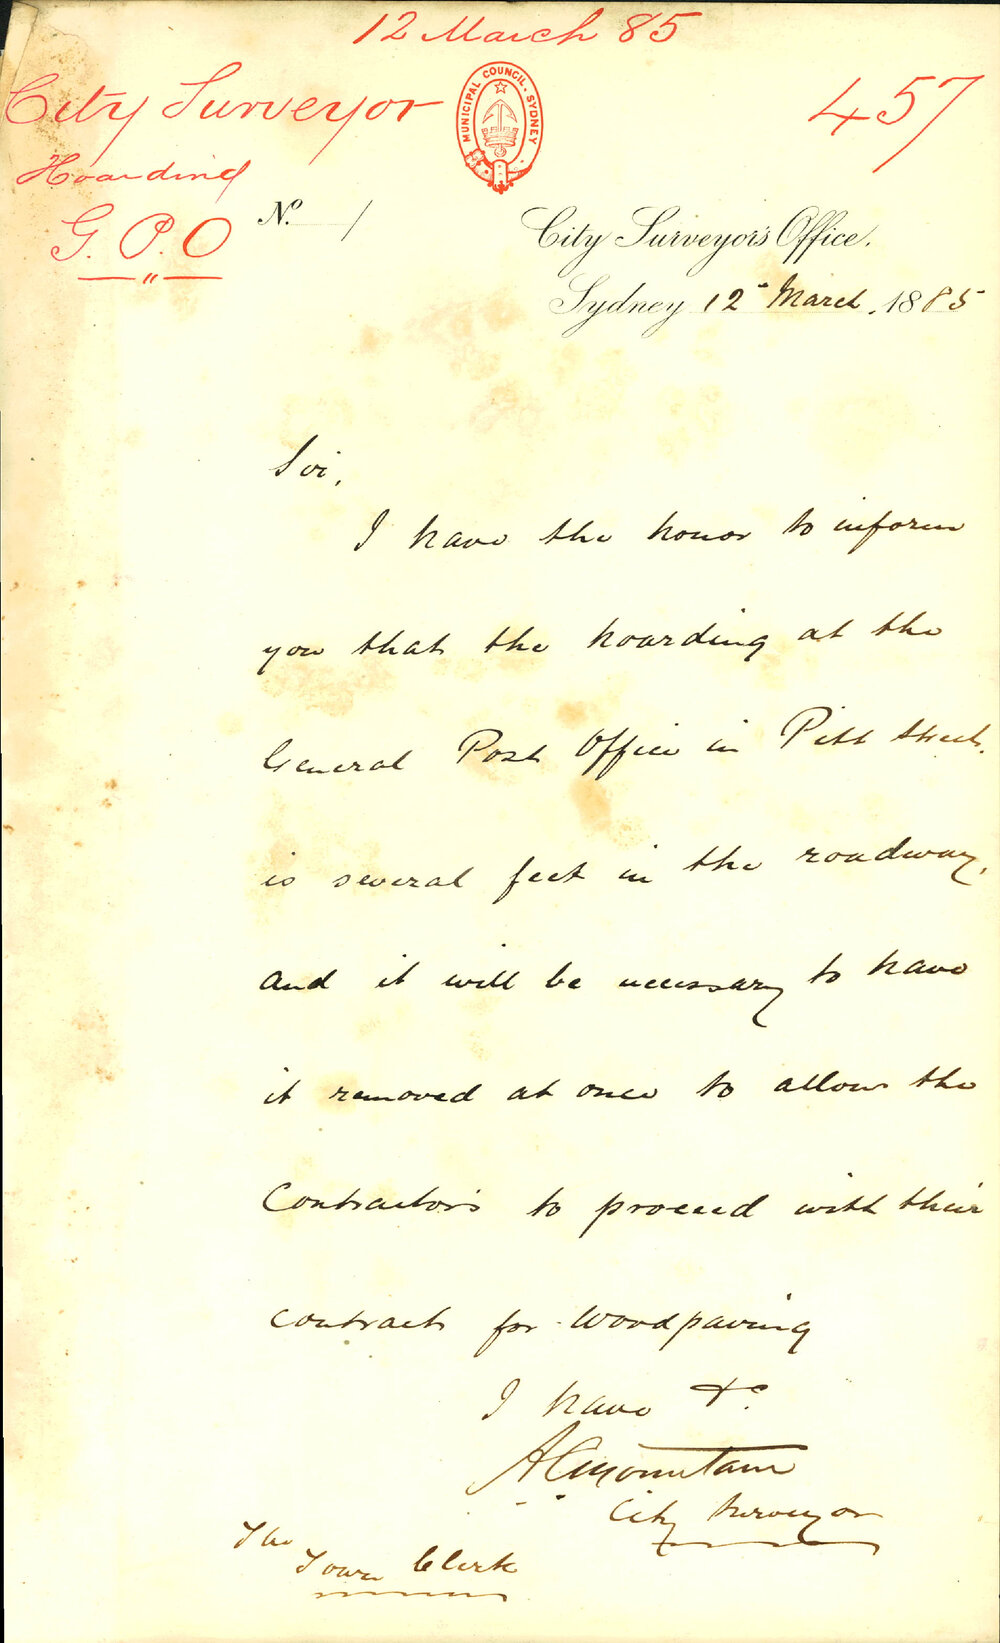 12 March 85
City Surveyor
457
MUNICIPAL COUNCIL. SYDNEY
Hoarding
G. P. O
No. /
City Surveyor's Office.
Sydney 12 March, 1885
Sir,
I have the honor to inform
you that the hoarding at the
General Post Office in Pitt Street.
is several feet in the roadway,
and it will be necessary to have
it removed at once to allow the
Contractors to proceed with their
contract for Woodpaving
I have &c
A C Mountain
City Surveyor
The
Town Clerk